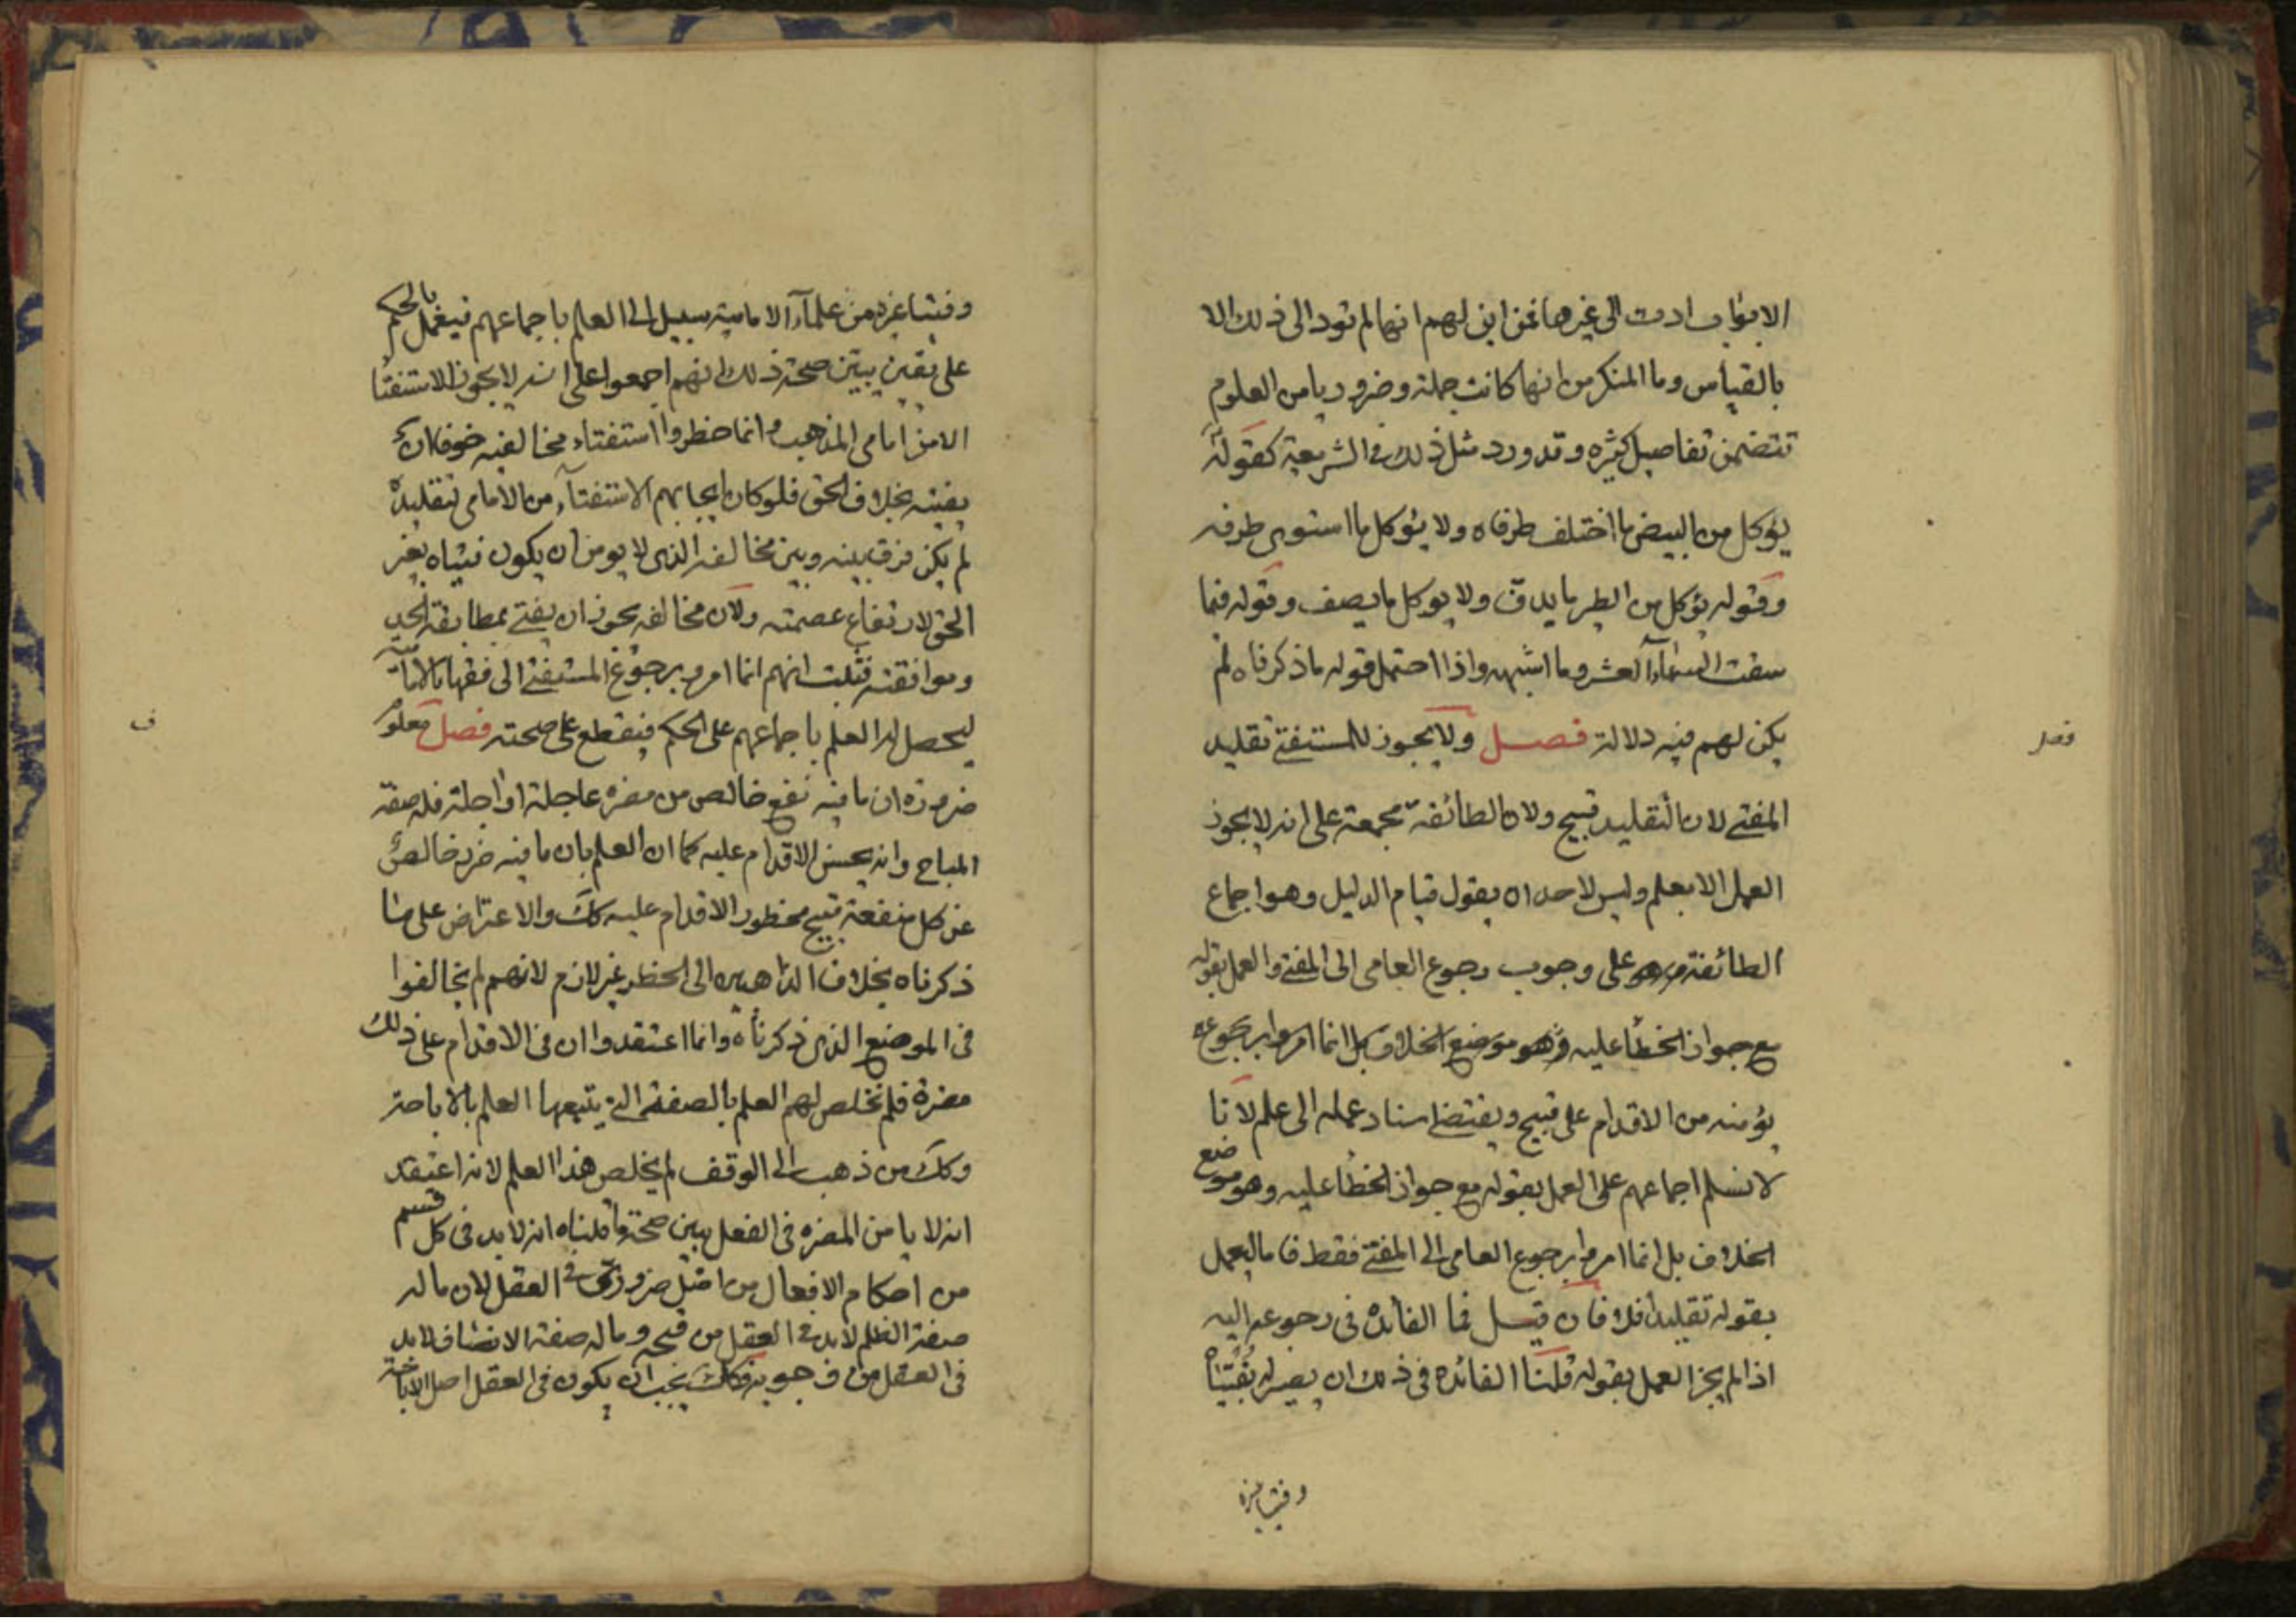 الابواب ادت الى غيرها فمن اين لهم انها لم تود الى ذلك الا
بالقياس وما المنكر من انها كانت جملة وضروريا من العلوم
تتضمن تفاصيل كثيره وقد ورد مثل ذلك في الشريعة كقوله
يؤكل من البيض ما اختلف طرفاه ولا يؤكل ما استوى طرفه
وقوله يؤكل من الطير ما يدف ولا يوكل ما يصف وقوله فيما
سقت السماء العشر وما اشبهه واذا احتمل قوله ما ذكرناه لم
يكن لهم فيه دلالة فصل ولا يجوز للمستفتي تقليد
فصل
المفتي لان التقليد قبيح ولان الطائفة مجمعة على انه لا يجوز
العمل الا بعلم وليس لاحد ان يقول قيام الدليل وهو اجماع
الطائفة على وجوب رجوع العامي الى المفتي والعمل بقوله
مع جواز الخطأ عليه وهو موضع الخلاف بل انما امروا برجوع
يؤمنه من الاقدام على قبيح ويقتضي اسناد عمله الى علم لانا
لا نسلم اجماعهم على العمل بقوله مع جواز الخطأ عليه وهو موضع
الخلاف بل انما امروا برجوع العامي الى المفتي فقط فاما العمل
بقوله تقليدا فلا فان قيل فما الفائدة في رجوعه اليه
اذا لم يجز العمل بقوله قلنا الفائدة في ذلك ان يصير له بفتياه
وفتيا غيره
وفتيا غيره من علماء الامامية سبيل الى العلم باجماعهم فيعمل بالحكم
على يقين يبين صحة ذلك انهم اجمعوا على انه لا يجوز الاستفتا
الا من امامي المذهب وانما حظروا استفتاء مخالفيه خوفا ان
يفتيه بخلاف الحق فلو كان ايجابهم الاستفتآء من الامامي لتقليده
لم يكن فرق بينه وبين مخالفه الذي لا يومن ان يكون فتياه بغير
الحق لارتفاع عصمته ولان مخالفه يجوز ان يفتي بمطابقة الحق
وموافقته فثبت انهم انما امروا برجوع المستفتي الى فقهاء الامامية
ليحصل له العلم باجماعهم على الحكم فيقطع على صحته فصل معلوم
ف
ضرورة ان ما فيه نفع خالص من مضرة عاجلة او اجلة فله صفة
المباح وانه يحسن الاقدام عليه كما ان العلم بان ما فيه ضرر خالص
عن كل منفعة قبيح محظور الاقدام عليه كك والاعتراض على ما
ذكرناه بخلاف الذاهبين الى الحظر غير لازم لانهم لم يخالفوا
في الموضع الذي ذكرناه وانما اعتقدوا ان في الاقدام على ذلك
مضرة فلم تخلص لهم العلم بالصفة التي يتبعها العلم بالاباحة
وكك من ذهب الى الوقف لم يخلص هذا العلم لانه اعتقد
انه لا يامن المضرة في الفعل يبين صحة ما قلناه انه لابد في كل قسم
من احكام الافعال من اصل ضروري في العقل لان ما له
صفة الظلم لابد في العقل من قبحه وما له صفة الانصاف لابد
في العقل من وجوبه فكك يجب ان يكون في العقل اصل الاباحة